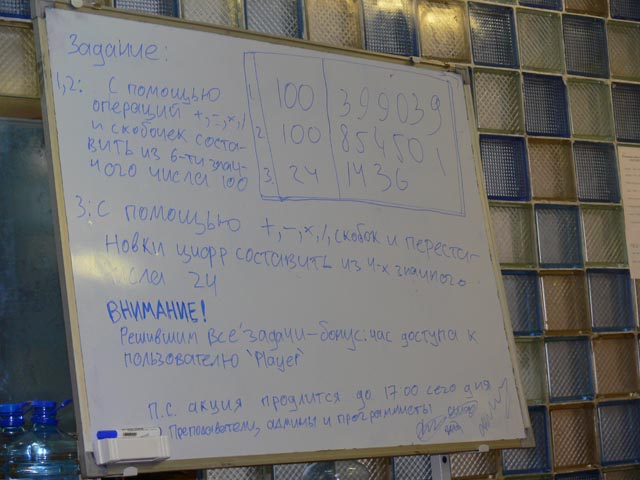 Задание:
1,2: С помощью
операций +,-,×,/
и скобочек соста-
вить из 6-ти знач-
ного числа 100
1. 100 399039
2. 100 854501
3. 24 1436
3: С помощью +,-,×,/, скобок и переста-
новки цифр составить из 4-х значного
числа 24
ВНИМАНИЕ!
Решившим все задачи-бонус: час доступа к
пользователю "Player"
П.С. акция продлится до 17:00 сего дня
Преподаватели, админы и программисты